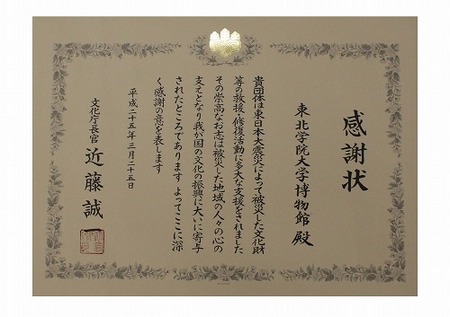 感謝状
東北学院大学博物館 殿
貴団体は東日本大震災によって被災した文化財
等の救援・修復活動に多大な支援をされました
その崇高なお志は被災した地域の人々の心の
支えとなり我が国の文化の振興に大いに寄与
されたところであります よってここに深
く感謝の意を表します
平成二十五年三月二十五日
文化庁長官 近藤誠一